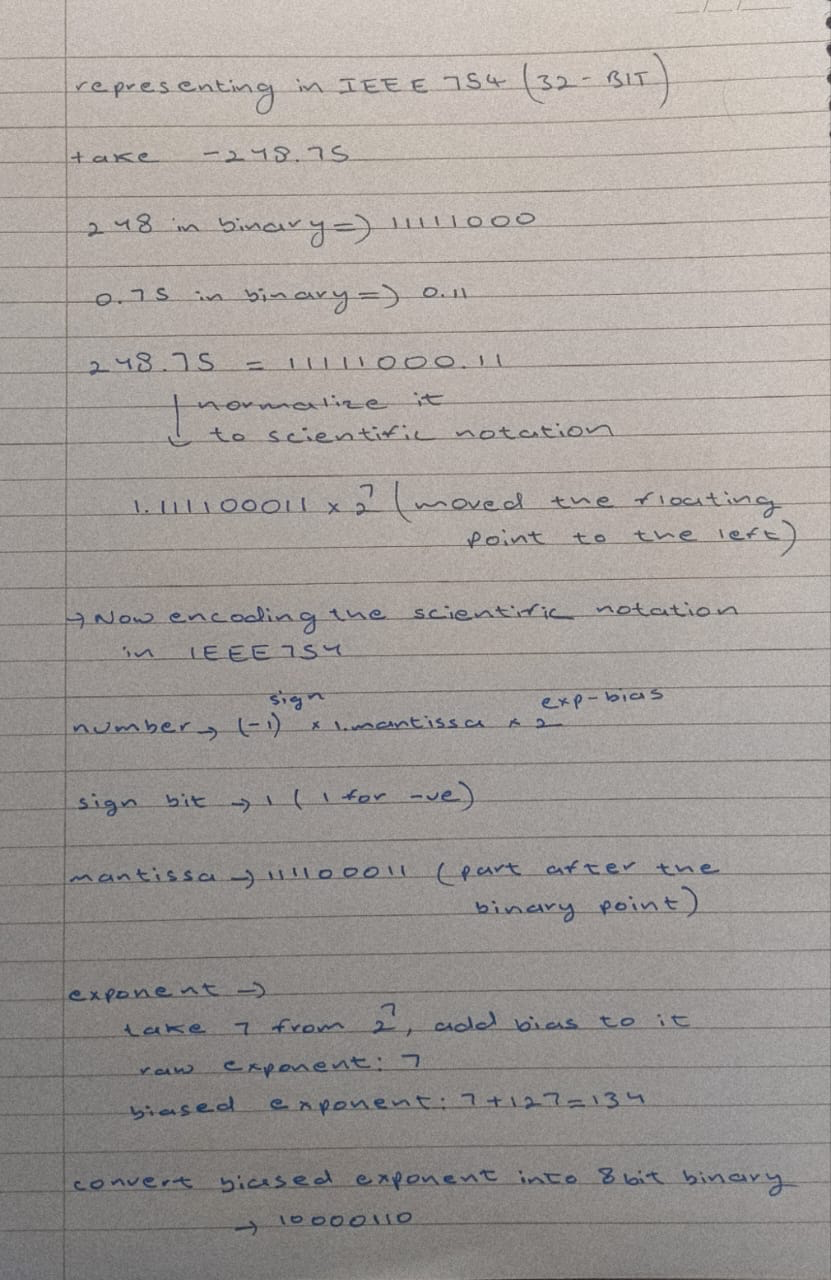 representing in IEEE 754 (32-BIT)
take -248.75
248 in binary => 11111000
0.75 in binary => 0.11
248.75 = 11111000.11
↓ normalize it
to scientific notation
1.111100011 x 2^7 (moved the floating
point to the left)
→ Now encoding the scientific notation
in IEEE 754
number → (-1)^sign x 1.mantissa x 2^exp-bias
sign bit → 1 (1 for -ve)
mantissa → 111100011 (part after the
binary point)
exponent →
take 7 from 2^7, add bias to it
raw exponent: 7
biased exponent: 7+127=134
convert biased exponent into 8 bit binary
→ 10000110